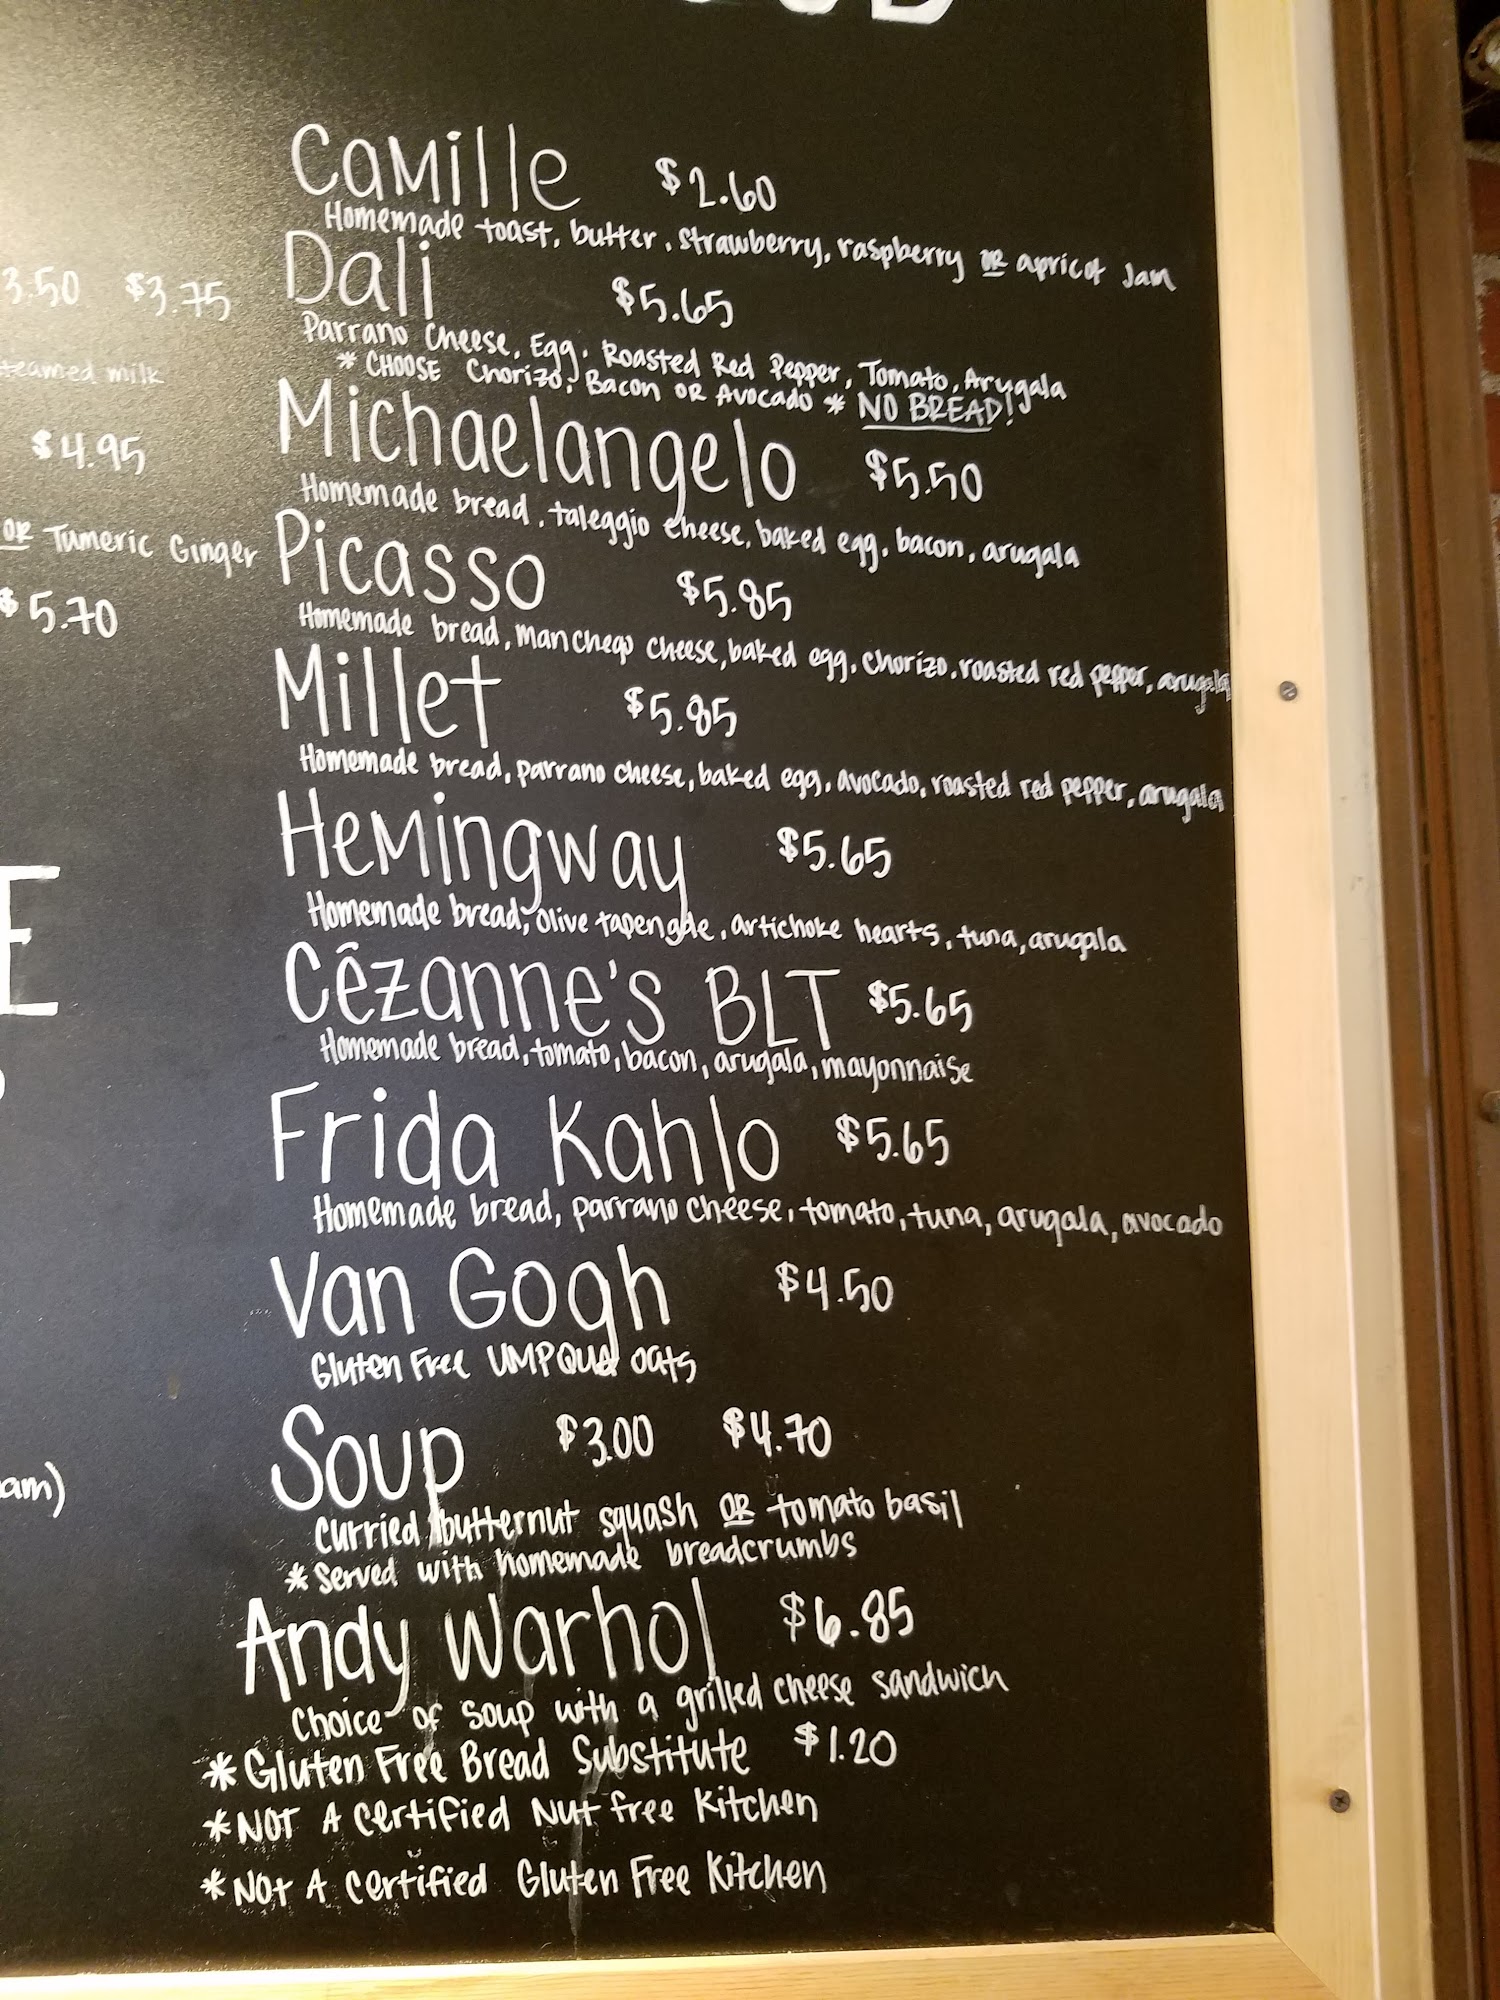 Camille $2.60
Homemade toast, butter, strawberry, raspberry OR apricot Jam
Dali $5.65
Parrano Cheese, Egg, Roasted Red Pepper, Tomato, Arugala
* CHOOSE Chorizo, Bacon OR Avocado * NO BREAD!
Michaelangelo $5.50
Homemade bread, taleggio cheese, baked egg, bacon, arugala
Picasso $5.85
Homemade bread, manchego cheese, baked egg, chorizo, roasted red pepper, arugala
Millet $5.85
Homemade bread, parrano cheese, baked egg, avocado, roasted red pepper, arugala
Hemingway $5.65
Homemade bread, olive tapengde, artichoke hearts, tuna, arugala
Cêzanne's BLT $5.65
Homemade bread, tomato, bacon, arugala, mayonnaise
Frida Kahlo $5.65
Homemade bread, parrano cheese, tomato, tuna, arugala, avocado
Van Gogh $4.50
Gluten Free UMPQUA oats
Soup $3.00 $4.70
Curried butternut squash OR tomato basil
* Served with homemade breadcrumbs
Andy Warhol $6.85
Choice of soup with a grilled cheese sandwich
* Gluten Free Bread Substitute $1.20
* NOT A Certified Nut free Kitchen
* Not A certified Gluten Free Kitchen
3.50 $3.75
teamed milk
$4.95
OR Tumeric Ginger
$5.70
E
am)